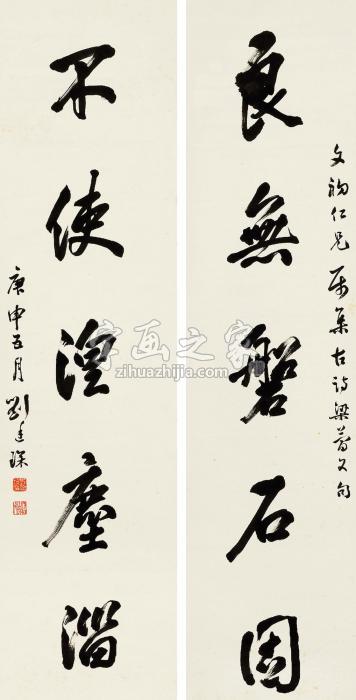 仁兄属集古诗梁句
良無磐石固
不使湼塵淄
庚申五月劉廷琛
字画之家
zihuazhijia.com